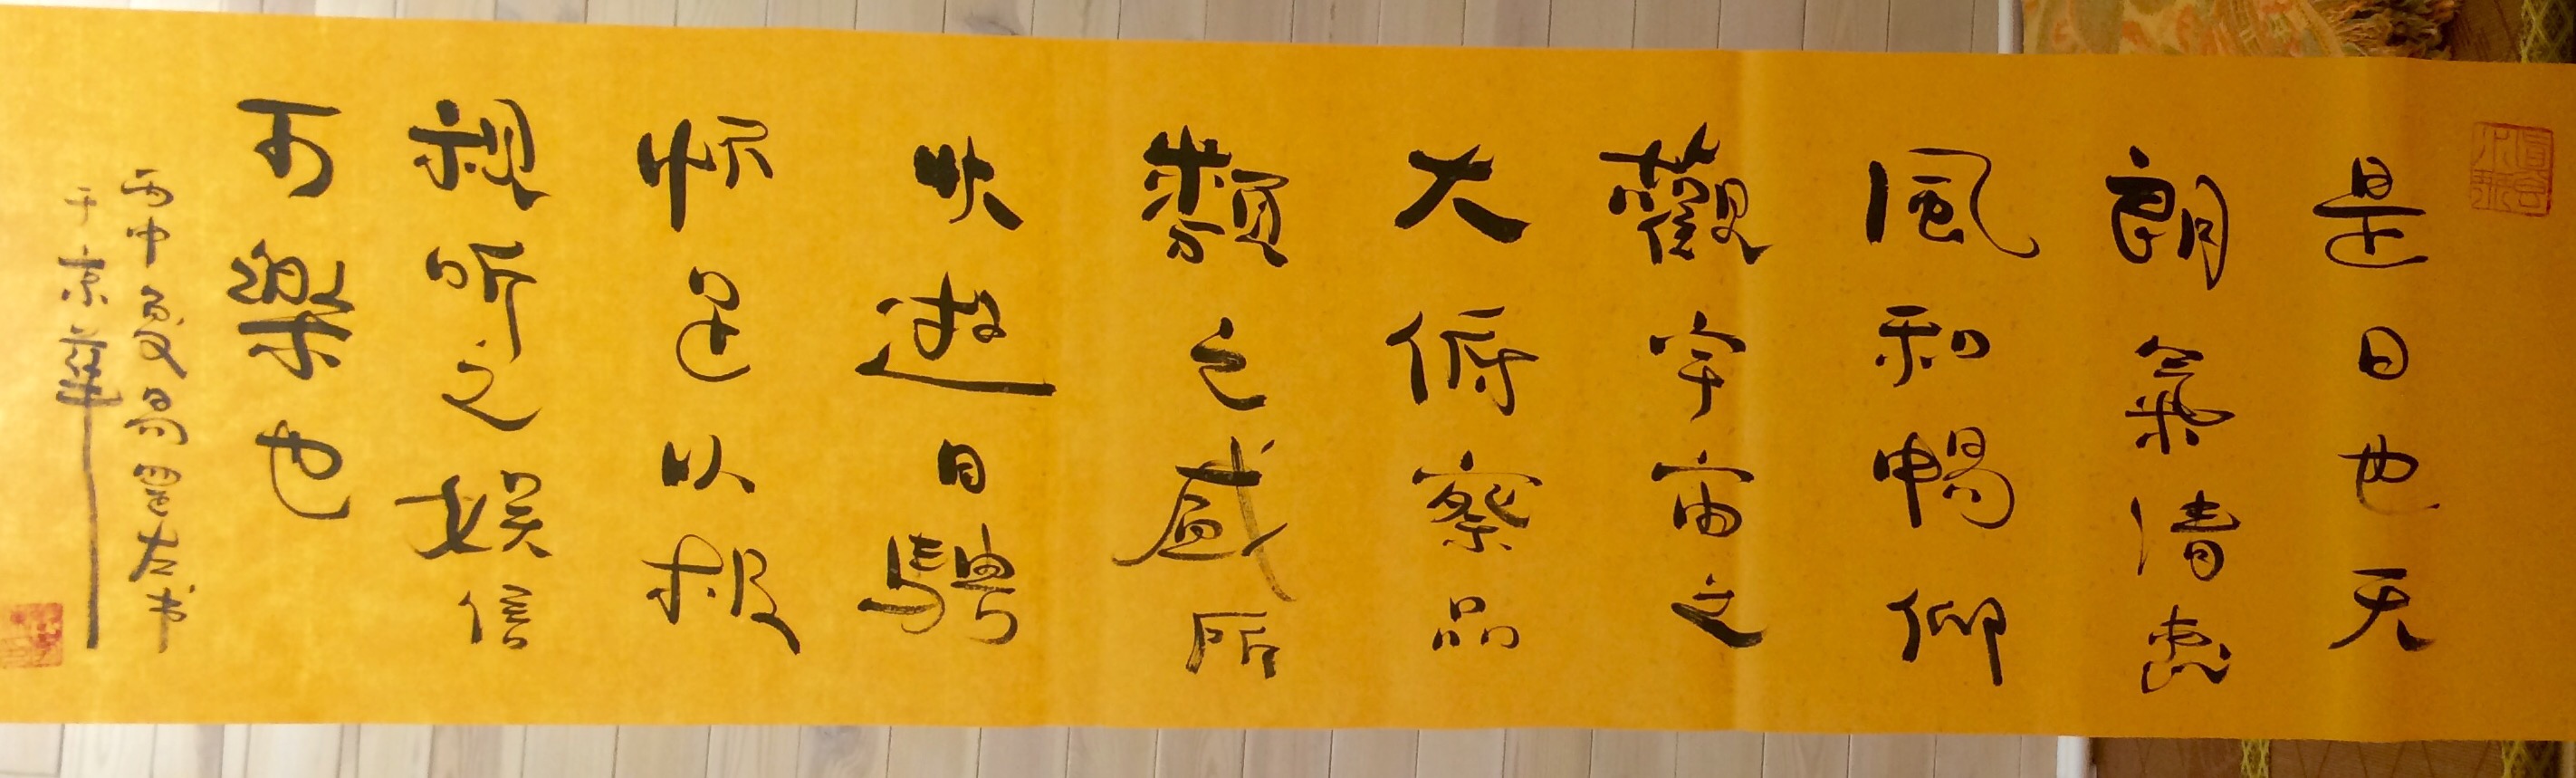 是日也天
朗氣清惠
風和暢仰
觀宇宙之
大俯察品
類之盛所
以遊目騁
怀足以极
視听之娱信
可樂也
丙申夏易墨左书
于京華